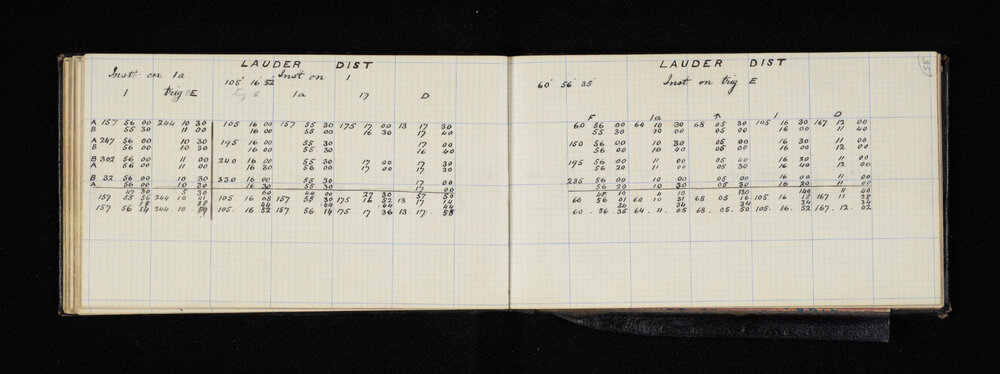 LAUDER DIST
Inst on 1a 105° 16' 52" Inst on 1
1 trig E trig E 1a 17 D
A 157 56 00 244 10 30 105 16 00 157 55 00 175 17 00 13 17 30
B 55 30 11 00 16 00 55 00 16 30 17 40
A 247 56 00 10 30 195 16 00 55 30 17 00
B 56 00 10 30 16 00 55 30 16 40
B 302 56 00 11 00 240 16 00 55 30 17 00 17 30
A 56 00 11 00 16 30 56 00 17 00 17 30
B 32 56 00 10 30 330 16 00 55 30 17 00
A 56 00 10 30 16 30 55 30 17 00
157 55 56 244 10 41 105 16 08 157 55 30 175 16 52 13 17 14
18 18 44 44 44 44
157 56 14 244 10 59 105. 16. 52 157 56 14 175 17 36 13. 17. 58
LAUDER DIST
35
60° 56' 35" Inst on trig E
F 1a ↑ 1 D
60 56 00 64 10 30 68 05 30 105 16 30 167 12 00
55 30 10 00 05 00 16 00 11 40
150 56 00 10 30 05 00 16 30 11 00
56 00 10 40 05 00 16 00 12 00
195 56 00 11 00 05 40 16 30 11 00
56 20 11 00 05 30 16 40 12 00
285 56 00 10 00 05 00 16 00 11 00
56 20 10 30 05 30 16 20 11 00
60 56 01 64 10 31 68 05 16 105 16 18 167 11 28
34 34 34 34 34
60. 56. 35 64. 11. 05 68. 05. 50 105. 16. 52 167. 12. 02